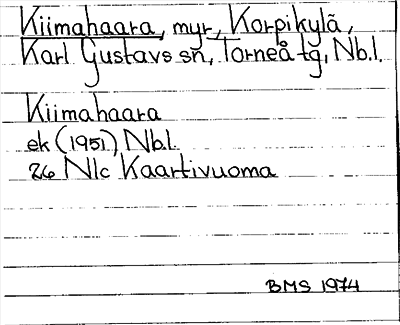 Kiimahaara, myr, Korpikylä,
Karl Gustavs sn, Torneå tg, Nb.l.
Kiimahaara
ek (1951) Nb.l.
26 Nlc Kaartivuoma
BMS 1974